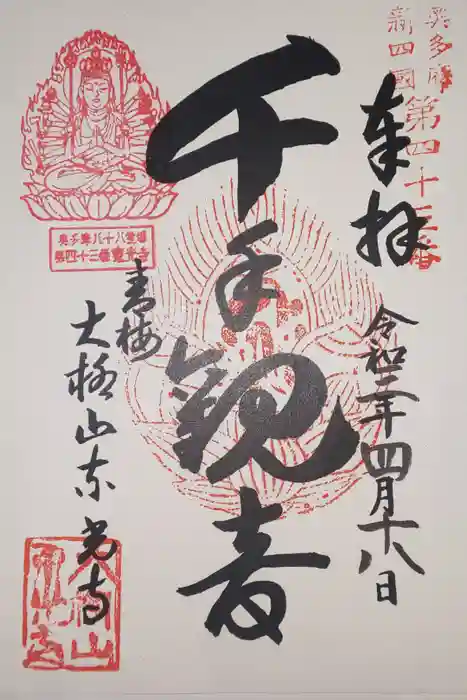 奥多摩
新四國
第四十三番
奉拝
令和三年四月十八日
千手観音
奥多摩八十八霊場
第四十三番東光寺
青梅
大柳山東光寺